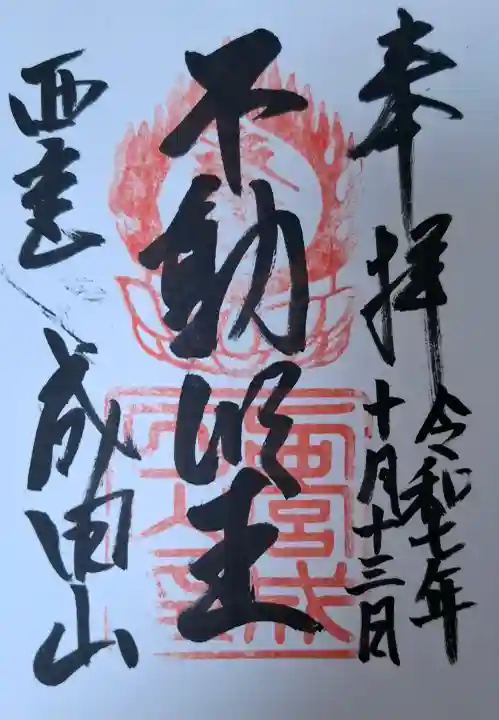 奉拝
令和七年
十月十三日
不動明王
西宮成
田山
西宮 成田山